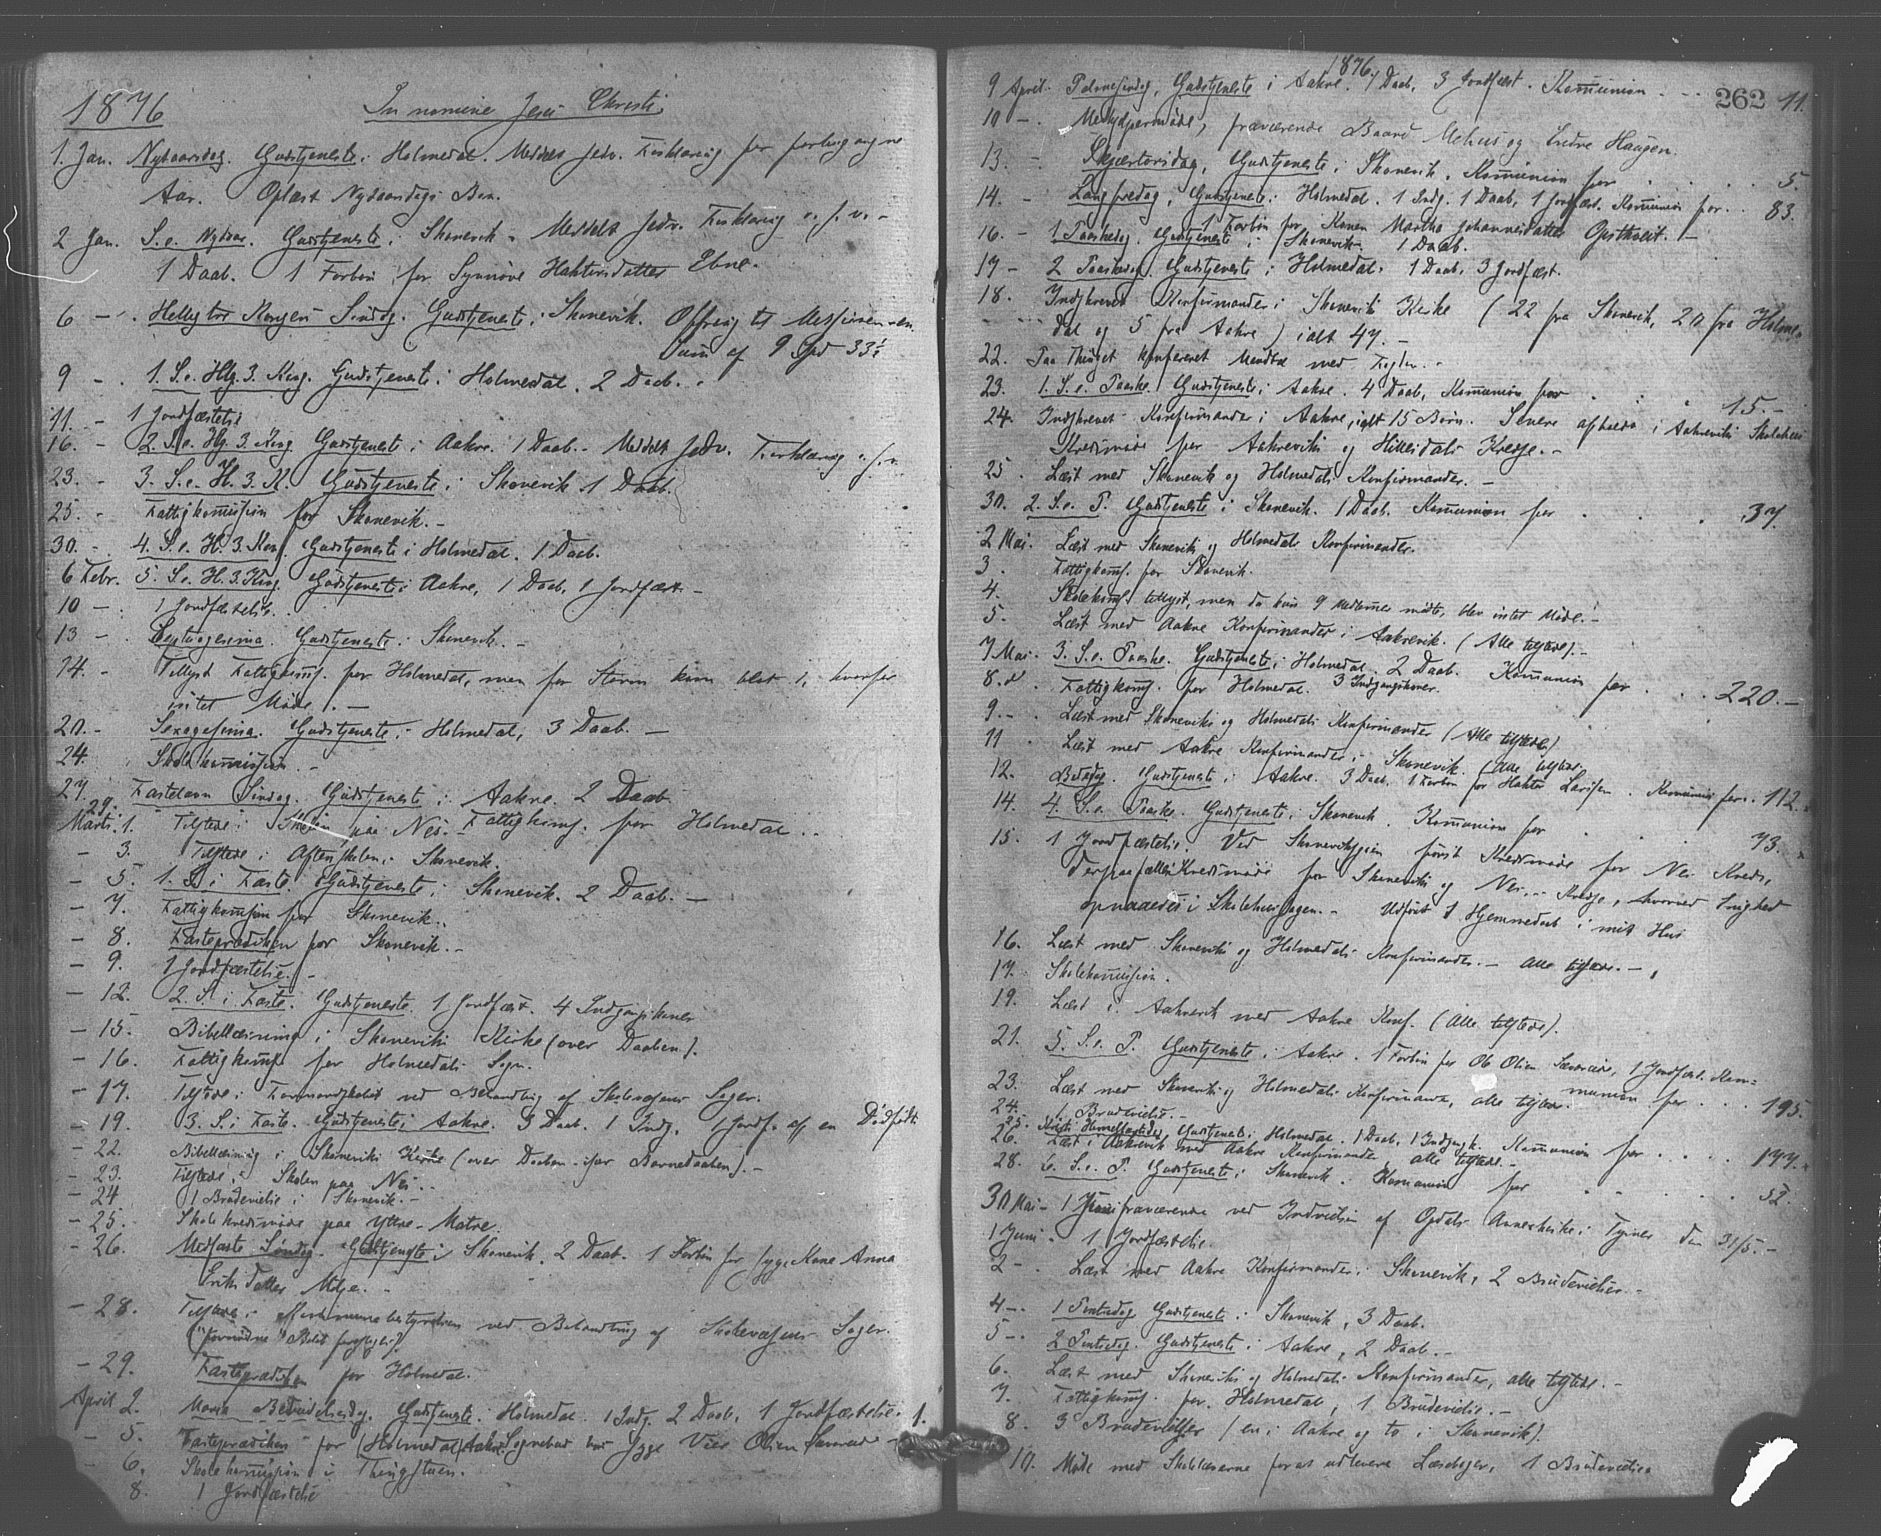 1876 In nomine Jesu Christi
1. Jan. Nyaarsdag. Gudstjeneste i Holmedal. Meddelt Forklaring for forløgangne
Aar. Oplæst Nyaarsdags Bøn.
2 Jan. S. e. Nytaar. Gudstjeneste i Skonevik. Meddelt Forklaring o. s. v. -
1 Daab. 1 Forbøn for Synnøve Ebne.
6 - Hellig tre Kongers Søndag. Gudstjeneste i Skonevik. Offring til Missionen
Sum af 9 Spd 33
9 - 1. S. e. Hlg. 3. Kong. Gudstjeneste i Holmedal. 2 Daab.
11. - 1 Jordfæstelse
16. - 2. S. e. Hlg. 3. Kong. Gudstjeneste i Aakre. 1 Daab. - Meddelt Forklaring o. s. v.
23. - 3. S. e. H. 3. K. Gudstjeneste i Skonevik. 1 Daab.
25. - Fattigkommission for Skonevik. -
30. - 4. S. e. H. 3. Kon. Gudstjeneste i Holmedal. 1 Daab.
6 Febr. 5. S. e. H. 3. Kong. Gudstjeneste i Aakre, 1 Daab, 1 Jordfæst. -
10 - 1 Jordfæstelse.
13 - Septuagesima. Gudstjeneste i Skonevik. -
14. - Tillyst Fattigkomm. for Holmedal, men for Storm kom blot 1, hvorfor
intet Møde. -
20. - Sexagesima. Gudstjeneste i Holmedal, 3 Daab. -
24. Skolekommission. -
27. Fastelavn Søndag. Gudstjeneste i Aakre. 2 Daab.
29. Fattigkomm. for Holmedal.
Marti. 1. Tilstede i Skolen paa Nes. -
- 3. Tilstede i Aftenskolen i Skonevik.
- 5. 1. S. i Faste. Gudstjeneste i Skonevik. 2 Daab. -
- 7. Fattigkommission for Skonevik.
- 8. Fasteprædiken for Skonevik. -
- 9. 1 Jordfæstelse. -
- 12. 2. S. i Faste. Gudstjeneste. 1 Jordfæst. 4 Indgangskoner
- 15. Bibellæsning i Skoneviks Kirke (over Daaben).
- 16. Fattigkomm. for Holmedals Sogn.
- 17. Tilstede i Formandskabet ved Behandling af Skolevæsenets Sager.
- 19. 3. S. i Faste. Gudstjeneste i Aakre. 3 Daab. 1 Indg. 1 Jordf. af en Dødfødt
- 22. Bibellæsning i Skoneviks Kirke (over Daaben. især Barnedaaben). -
- 23. Tilstede i Skolen paa Nes.
- 24 1 Brudevielse i Skonevik. -
- 25. Skolekredsmøde paa Ytre-Matre.
- 26. Midfaste Søndag. Gudstjeneste i Skonevik. 2 Daab. 1 Forbøn for syge Kone Anna
Eriksdatter Milje. -
- 28. Tilstede i ved Behandling af Skolevæsenets Sager.
- 29. Fasteprædiken for Holmedal.
April 2. Maria Bebudelsesdag. Gudstjeneste i Holmedal. 1 Indg. 2 Daab. 1 Jordfæstelse. 1.
- 5. Fasteprædiken for Holmedal Sognebud hos syge Olsen
- 6. Skolekommission i Thingstuen.
8. 1 Jordfæstelse
1876
262 11.
9 April. Palmesøndag, Gudstjeneste i Aakre. 1 Daab, 3 Jordfæst. Kommunion
10 - fraværende Baard Mehus og Endre Haugen.
13. - Skjærtorsdag, Gudstjeneste i Skonevik. Kommunion for 5.
14. - Langfredag, Gudstjeneste i Holmedal. 1 Indg. 1 Daab, 1 Jordfæst. Kommunion for 83.
1 Forbøn for Konen Martha Johannesdatter
16. - 1 Paaskedag. Gudstjeneste i Skonevik. 1 Daab.
17 - 2 Paaskedag. Gudstjeneste i Holmedal. 1 Daab, 3 Jordfæst.
18. Indskrevet Konfirmander i Skoneviks Kirke (22 fra Skonevik, 20 fra Holme-
dal og 5 fra Aakre) ialt 47. -
22. Paa Thinget konfereret Mandtal med Fogden. -
23. 1. S. e. Paaske. Gudstjeneste i Aakre. 4 Daab, Kommunion for 15. -
24. Indskrevet Konfirmander i Aakre, ialt 15 Børn. Senere afholdt i Aakreviks Skolehus
Kredsmøde for Aakreviks og Kredse. -
25. Læst med Skoneviks og Holmedals Konfirmander. -
30. 2. S. e. P. Gudstjeneste i Skonevik. 1 Daab. Kommunion for 37
2 Mai. Læst med Skoneviks og Holmedals Konfirmander.
3. Fattigkomm. for Skonevik.
4. Skolekomm. tillyst, men da kun 9 Medlemmer mødte, blev intet Møde. -
5. Læst med Aakre Konfirmander i Aakrevik. (Alle tilstede). -
7 Mai. 3. S. e. Paaske. Gudstjeneste i Holmedal. 2 Daab. Kommunion for 220. -
3 Indgangskoner.
8. Fattigkomm. for Holmedal.
9. - Læst med Skoneviks og Holmedals Konfirmander (Alle tilstede)
11 Læst med Aakre Konfirmander i Skonevik. (Alle tilstede.
12. Bededag. Gudstjeneste i Aakre. 3 Daab. 1 Forbøn for Larsen. Kommunion for 112.
14. 4. S. e. Paaske. Gudstjeneste i Skonevik. Kommunion for 73.
15. 1 Jordfæstelse. Ved først Kredsmøde for Nes Kreds,
derpaa fælles Kredsmøde for Skoneviks og Nes Kredse, hvorved Enighed
opnaaedes i Skolehussagen. - Udført 1 Hjemmedaab i mit Hus
16. Læst med Skoneviks og Holmedals Konfirmander. - Alle tilstede. -
17. Skolekommission.
19. Læst i Aakrevik med Aakre Konf. (Alle tilstede).
21. 5. S. e. P. Gudstjeneste i Aakre. 1 Forbøn for Ole Olsen 1 Jordfæst. Kom-
munion for 195.
23. Læst med Skoneviks og Holmedals Konfirmander, alle tilstede.
24. 1 Brudevielse. -
25. Kristi Himmelfartsdag. Gudstjeneste i Holmedal. 1 Daab, 1 Indgangsk. Kommunion for 177.
26. Læst i Aakrevik med Aakre Konfirmander, alle tilstede. -
28. 6. S. e. P. Gudstjeneste i Skonevik. Kommunion for 52.
30 Mai - 1 Juni fraværende ved Indvielsen af Opdals Annexkirke i Tysnes den 31/5. -
1 Juni. 1 Jordfæstelse.
2 - Læst med Aakre Konfirmander i Skonevik, 2 Brudevielser. -
4 - 1 Pintsedag. Gudstjeneste i Skonevik, 3 Daab.
5 - 2 Pintsedag. Gudstjeneste i Aakre, 2 Daab. -
6. Læst med Skoneviks og Holmedals Konfirmander, alle tilstede. -
7. Fattigkomm. for Holmedal, 1 Brudevielse. -
8. 3 Brudevielser (en i Aakre og to i Skonevik).
10. Møde med Skolelærerne for at udlevere Læsebøger, 1 Brudevielse